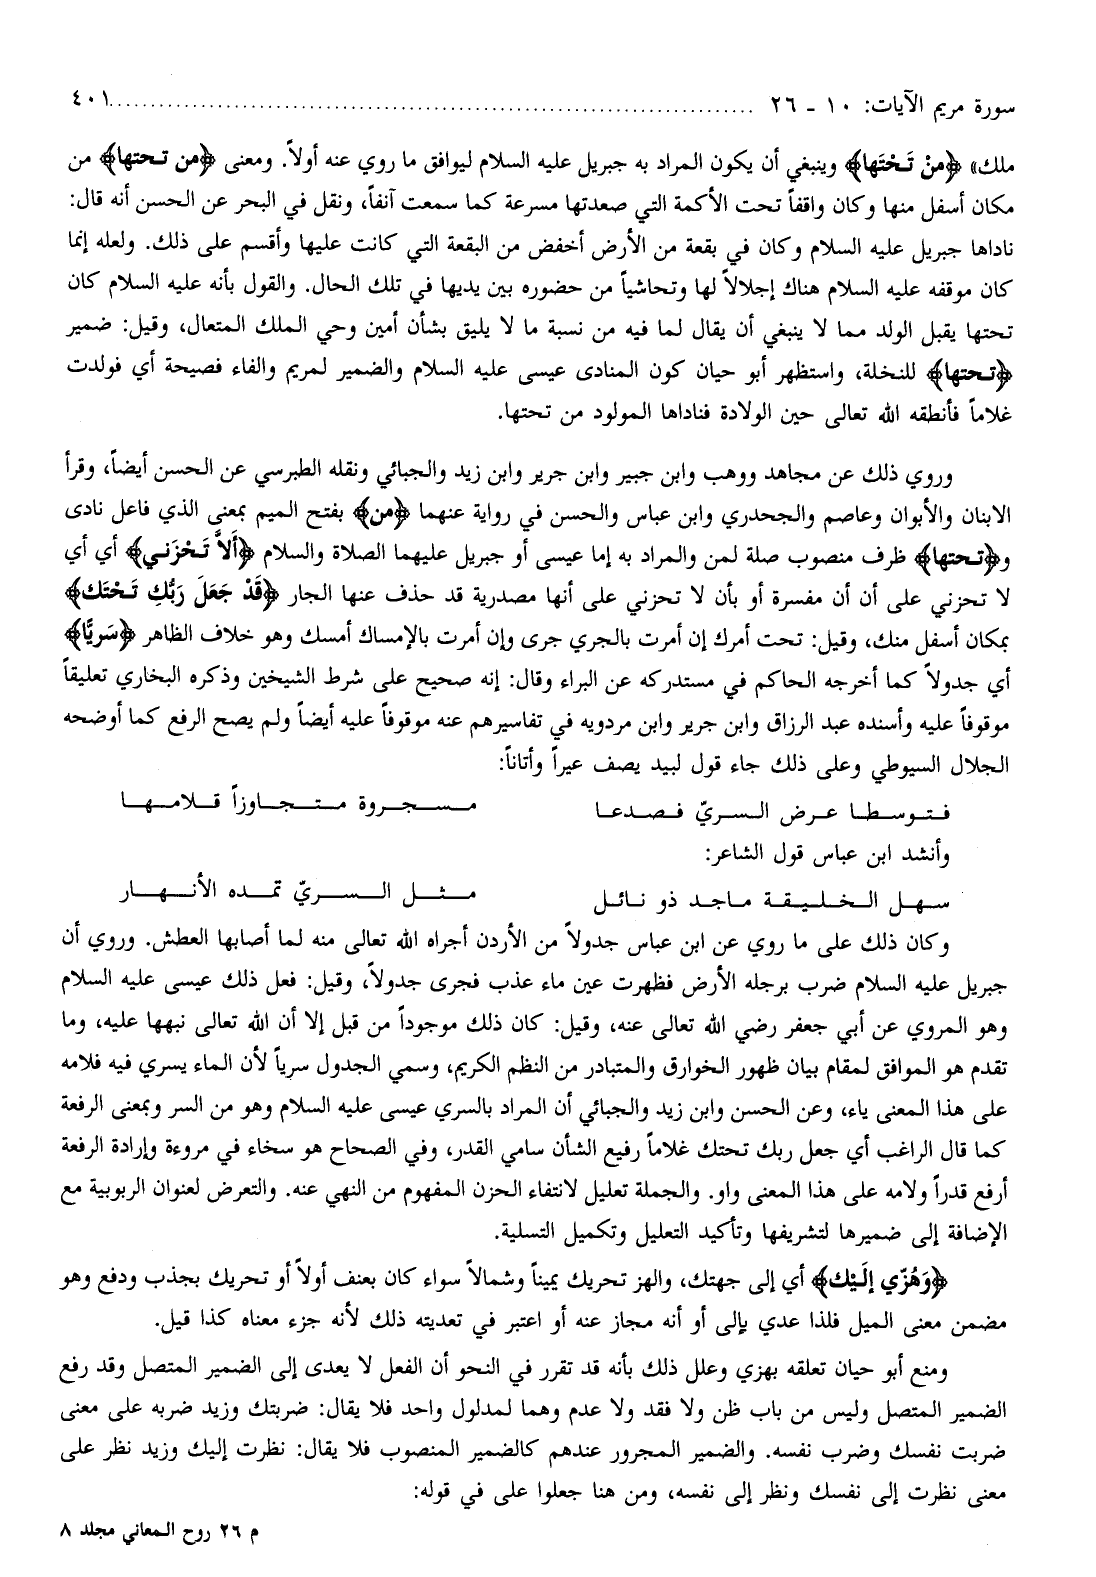 سورة مريم الآيات: ١٠ - ٢٦ ........................................................................... ٤٠١
ملك» ﴿مِنْ تَحْتَها﴾ وينبغي أن يكون المراد به جبريل عليه السلام ليوافق ما روي عنه أولاً. ومعنى ﴿من تحتها﴾ من
مكان أسفل منها وكان واقفاً تحت الأكمة التي صعدتها مسرعة كما سمعت آنفاً، ونقل في البحر عن الحسن أنه قال:
ناداها جبريل عليه السلام وكان في بقعة من الأرض أخفض من البقعة التي كانت عليها وأقسم على ذلك. ولعله إنما
كان موقفه عليه السلام هناك إجلالاً لها وتحاشياً من حضوره بين يديها في تلك الحال. والقول بأنه عليه السلام كان
تحتها يقبل الولد مما لا ينبغي أن يقال لما فيه من نسبة ما لا يليق بشأن أمين وحي الملك المتعال، وقيل: ضمير
﴿تحتها﴾ للنخلة، واستظهر أبو حيان كون المنادى عيسى عليه السلام والضمير لمريم والفاء فصيحة أي فولدت
غلاماً فأنطقه الله تعالى حين الولادة فناداها المولود من تحتها.
وروي ذلك عن مجاهد ووهب وابن جبير وابن جرير وابن زيد والجبائي ونقله الطبرسي عن الحسن أيضاً، وقرأ
الابنان والأبوان وعاصم والجحدري وابن عباس والحسن في رواية عنهما ﴿من﴾ بفتح الميم بمعنى الذي فاعل نادى
و﴿تحتها﴾ ظرف منصوب صلة لمن والمراد به إما عيسى أو جبريل عليهما الصلاة والسلام ﴿أَلاَّ تَحْزَني﴾ أي أي
لا تحزني على أن أن مفسرة أو بأن لا تحزني على أنها مصدرية قد حذف عنها الجار ﴿قَدْ جَعَلَ رَبُّكِ تَحْتَك﴾
بمكان أسفل منك، وقيل: تحت أمرك إن أمرت بالجري جرى وإن أمرت بالإمساك أمسك وهو خلاف الظاهر ﴿سَريًّا﴾
أي جدولاً كما أخرجه الحاكم في مستدركه عن البراء وقال: إنه صحيح على شرط الشيخين وذكره البخاري تعليقاً
موقوفاً عليه وأسنده عبد الرزاق وابن جرير وابن مردويه في تفاسيرهم عنه موقوفاً عليه أيضاً ولم يصح الرفع كما أوضحه
الجلال السيوطي وعلى ذلك جاء قول لبيد يصف عيراً وأتاناً:
فتوسطا عرض السريّ فصدعا مسجروة متجاوزاً قلامها
وأنشد ابن عباس قول الشاعر:
سهل الخليقة ماجد ذو نائل مثل السريّ تمده الأنهار
وكان ذلك على ما روي عن ابن عباس جدولاً من الأردن أجراه الله تعالى منه لما أصابها العطش. وروي أن
جبريل عليه السلام ضرب برجله الأرض فظهرت عين ماء عذب فجرى جدولاً، وقيل: فعل ذلك عيسى عليه السلام
وهو المروي عن أبي جعفر رضي الله تعالى عنه، وقيل: كان ذلك موجوداً من قبل إلا أن الله تعالى نبهها عليه، وما
تقدم هو الموافق لمقام بيان ظهور الخوارق والمتبادر من النظم الكريم، وسمي الجدول سرياً لأن الماء يسري فيه فلامه
على هذا المعنى ياء، وعن الحسن وابن زيد والجبائي أن المراد بالسري عيسى عليه السلام وهو من السر وبمعنى الرفعة
كما قال الراغب أي جعل ربك تحتك غلاماً رفيع الشأن سامي القدر، وفي الصحاح هو سخاء في مروءة وإرادة الرفعة
أرفع قدراً ولامه على هذا المعنى واو. والجملة تعليل لانتفاء الحزن المفهوم من النهي عنه. والتعرض لعنوان الربوبية مع
الإضافة إلى ضميرها لتشريفها وتأكيد التعليل وتكميل التسلية.
﴿وَهُزّي إلَيْك﴾ أي إلى جهتك، والهز تحريك يميناً وشمالاً سواء كان بعنف أولاً أو تحريك بجذب ودفع وهو
مضمن معنى الميل فلذا عدي بإلى أو أنه مجاز عنه أو اعتبر في تعديته ذلك لأنه جزء معناه كذا قيل.
ومنع أبو حيان تعلقه بهزي وعلل ذلك بأنه قد تقرر في النحو أن الفعل لا يعدى إلى الضمير المتصل وقد رفع
الضمير المتصل وليس من باب ظن ولا فقد ولا عدم وهما لمدلول واحد فلا يقال: ضربتك وزيد ضربه على معنى
ضربت نفسك وضرب نفسه. والضمير المجرور عندهم كالضمير المنصوب فلا يقال: نظرت إليك وزيد نظر على
معنى نظرت إلى نفسك ونظر إلى نفسه، ومن هنا جعلوا على في قوله:
م ٢٦ روح المعاني مجلد ٨